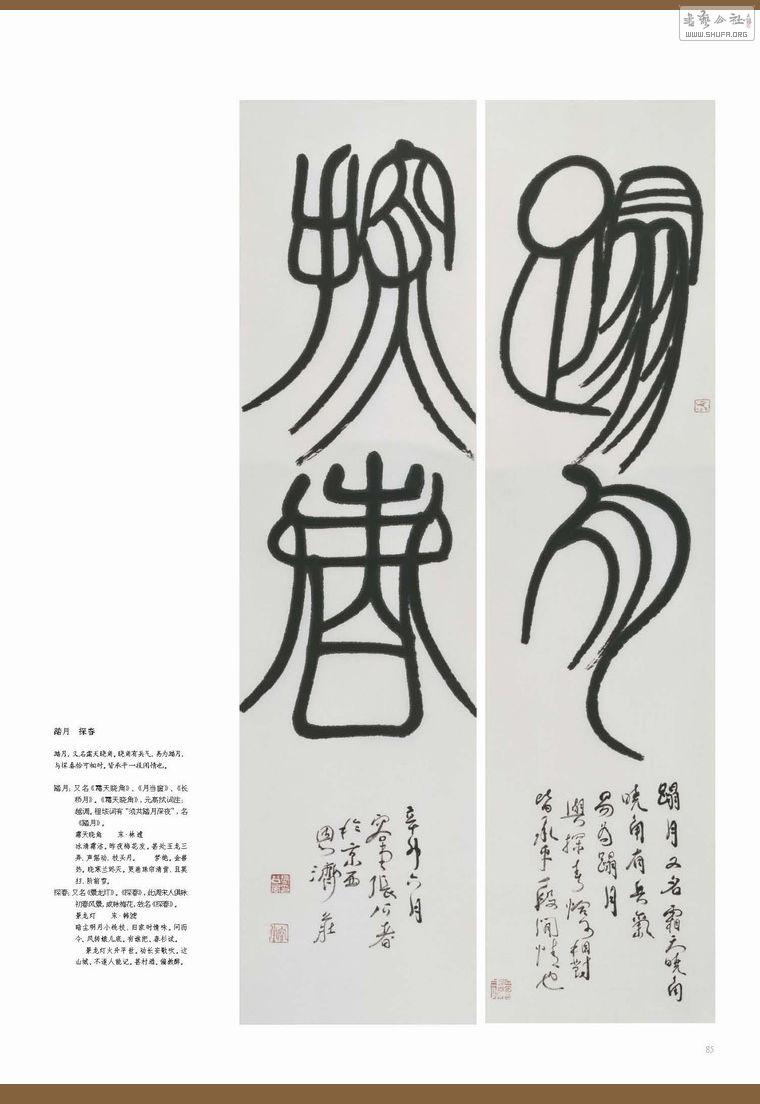 书艺公社
WWW.SHUFA.ORG
蹋月
探春
蹋月又名霜天晓角
晓角有兵氣
易为蹋月
與探春恰可相對
皆承平一段闲情也
辛卯六月
張公者
於京西
踏月 探春
踏月,又名霜天晓角。晓角有兵气,易为踏月,
与探春恰可相对,皆承平一段闲情也。
踏月:又名《霜天晓角》、《月当窗》、《长
桥月》。《霜天晓角》,元高拭词注:
越调。程垓词有“须共踏月深夜”,名
《踏月》。
霜天晓角 宋·林逋
冰清霜洁。昨夜梅花发。甚处玉龙三
弄,声摇动、枝头月。 梦绝。金兽
热。晓寒兰烬灭。更卷珠帘清赏,且莫
扫、阶前雪。
探春:又名《景龙灯》。《探春》,此调宋人俱咏
初春风景,或咏梅花,故名《探春》。
景龙灯 宋·韩淲
暗尘明月小桃枝。旧家时情味。问而
今、风转蛾儿底。有谁把、春衫试。
景龙灯火升平世。动长安歌吹。这
山城、不道人能记。甚村酒、偏教醉。
85